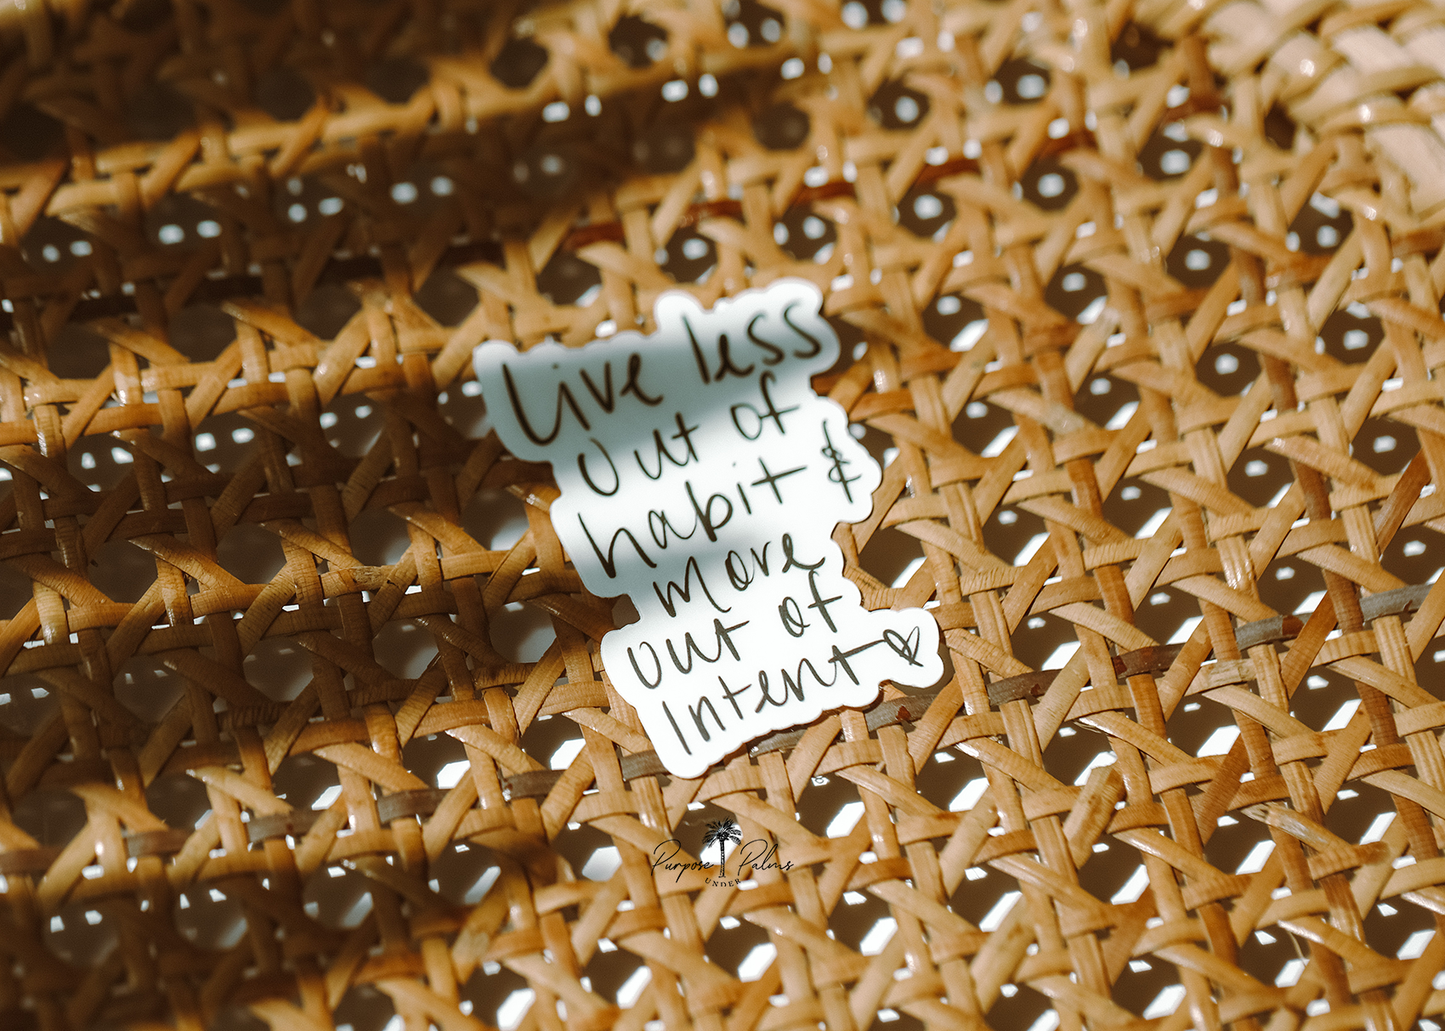 Live less
out of
habit &
more
out of
Intent
Purpose Palms
UNDER